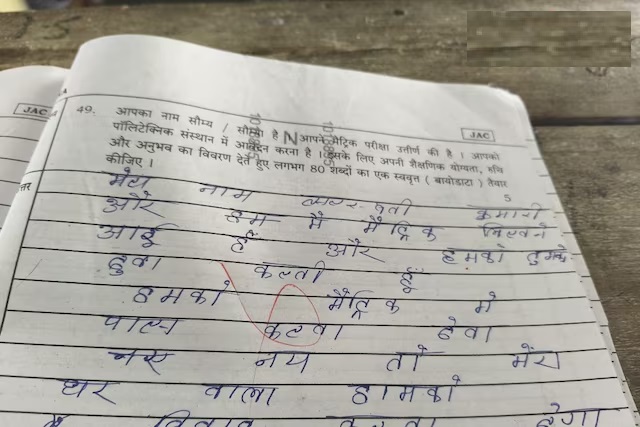 JAC
JAC
49. आपका नाम सौम्य / सौम्या है । आपने मैट्रिक परीक्षा उत्तीर्ण की है । आपको
पॉलिटेक्निक संस्थान में आवेदन करना है । इसके लिए अपनी शैक्षणिक योग्यता, रुचि
और अनुभव का विवरण देते हुए लगभग 80 शब्दों का एक स्ववृत्त ( बायोडाटा ) तैयार
कीजिए ।
5
मेरा नाम कुमारी
और हम मै मैट्रिक
आई हैं और हमको
हुवा करती हूँ
हमको मैट्रिक मे
पास करवा देवा
नय तो मेरा
घर वाला हामको
होगा